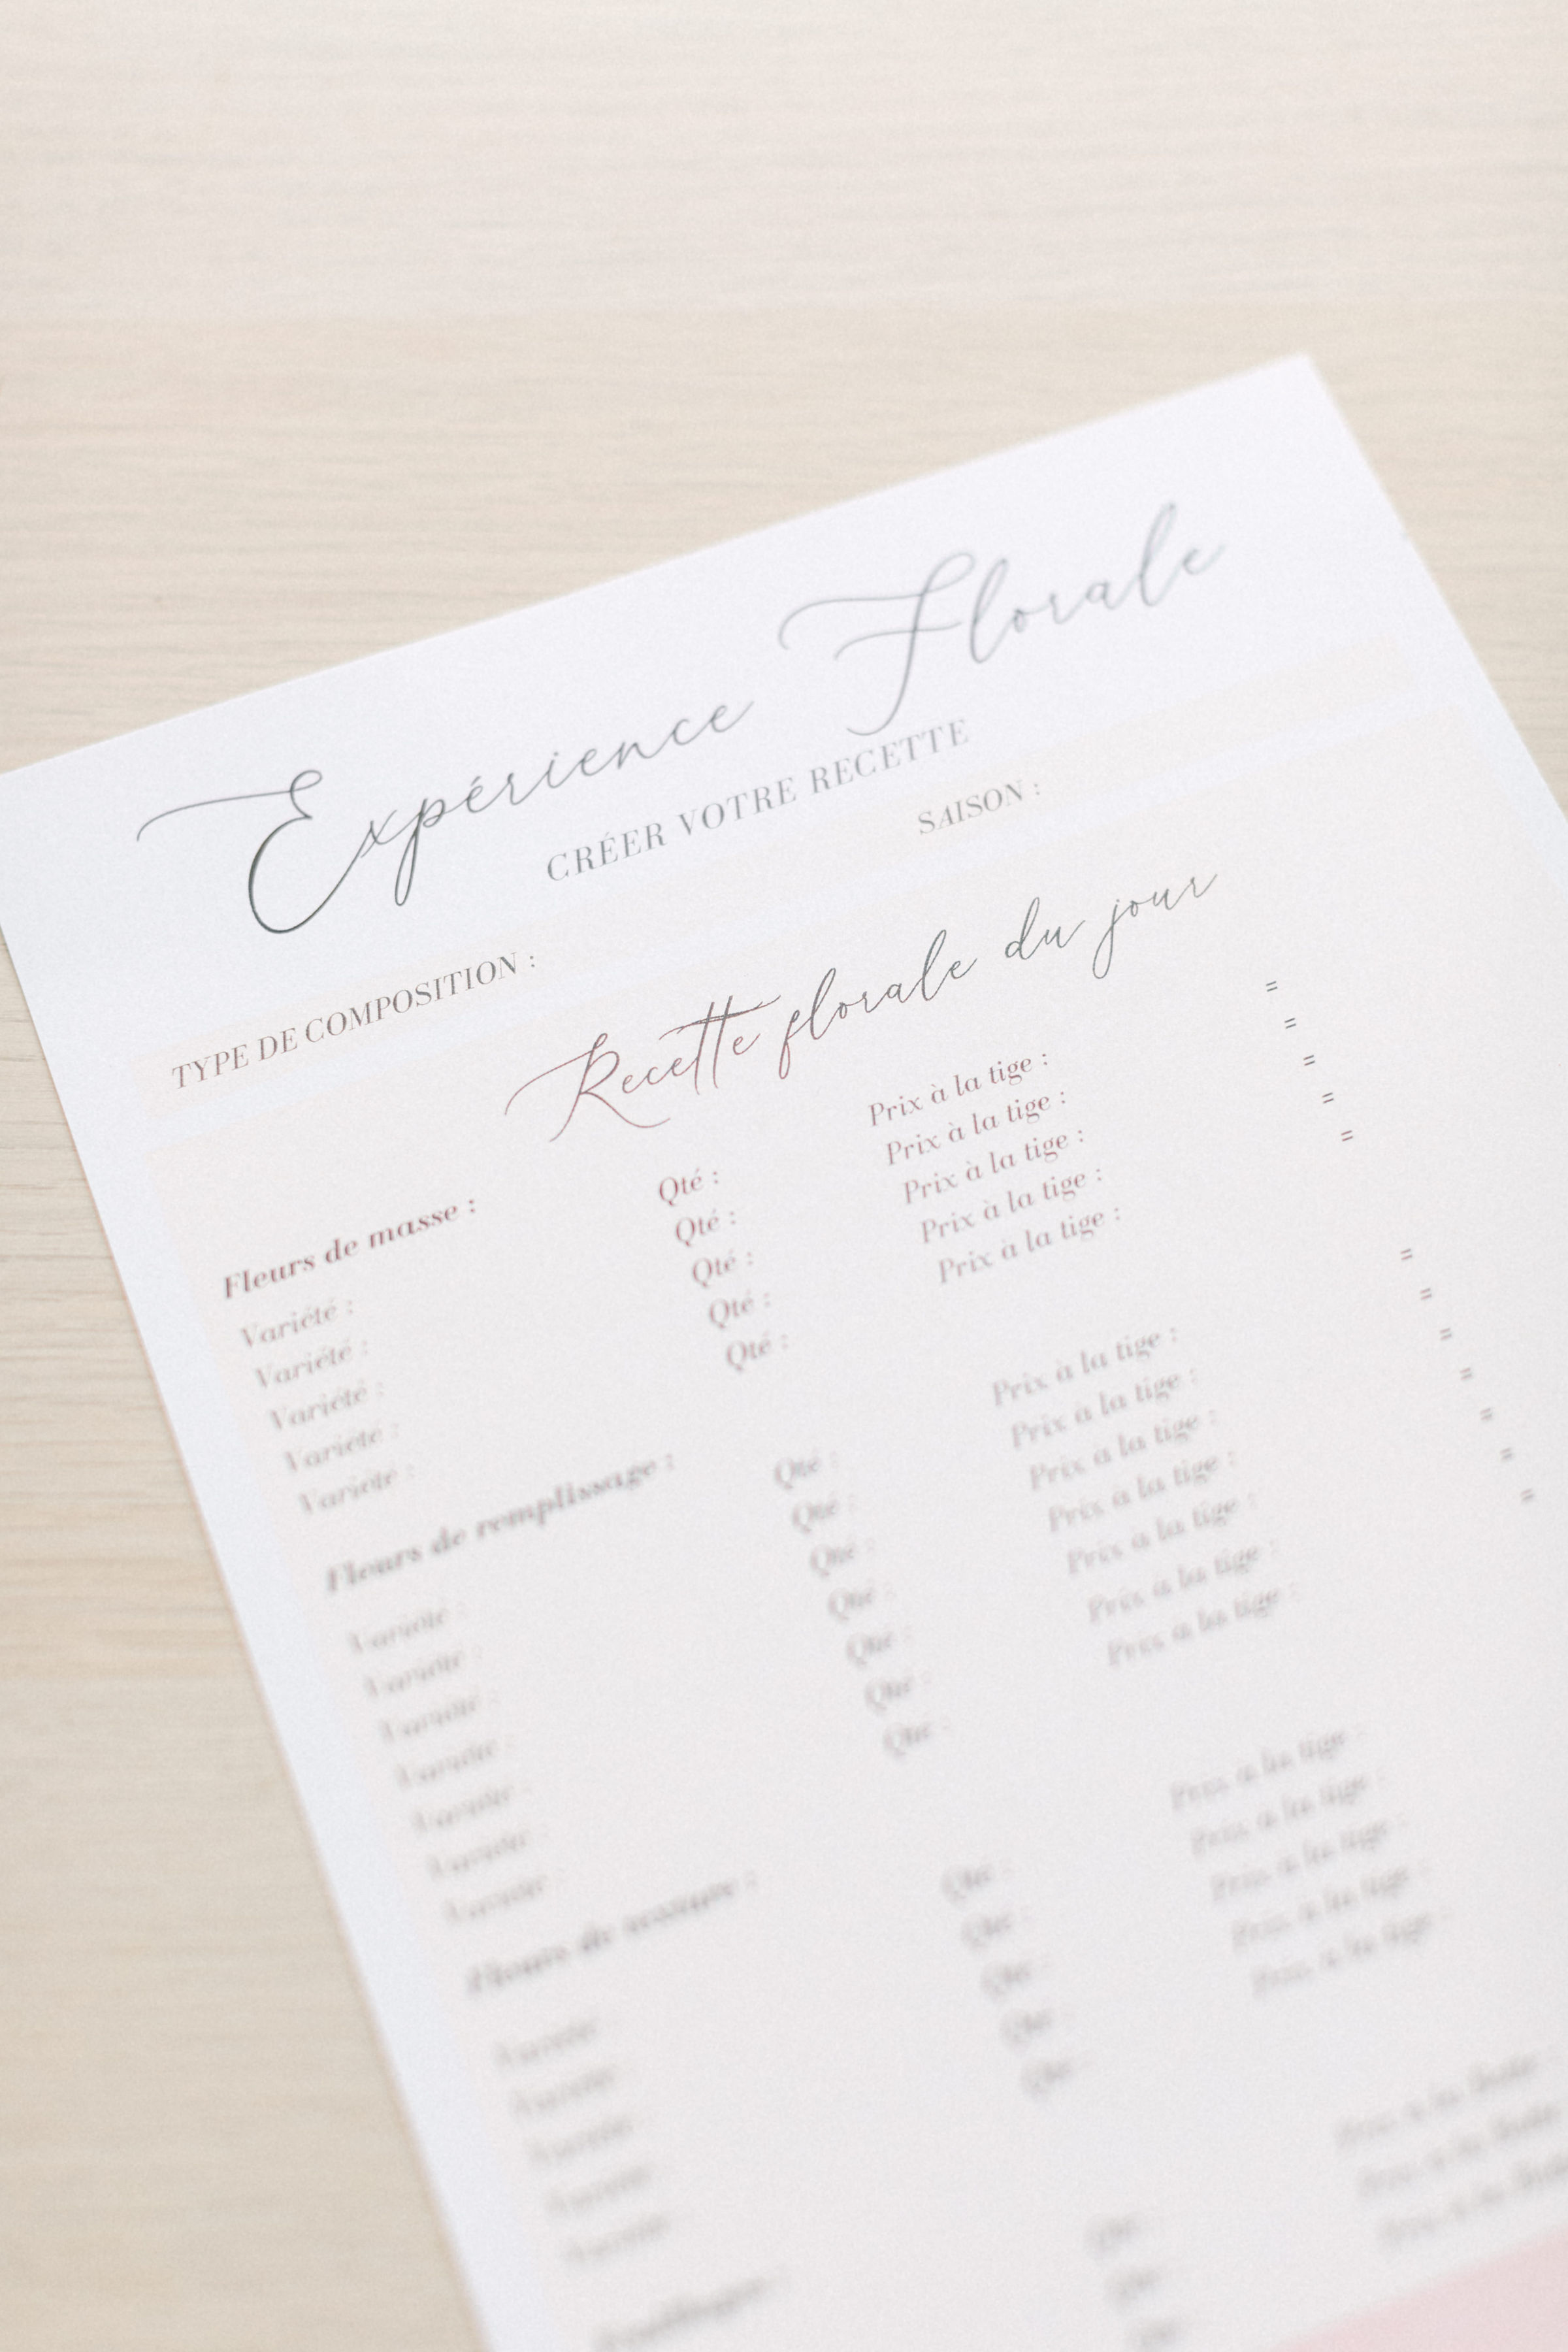 Expérience Florale
CRÉER VOTRE RECETTE
TYPE DE COMPOSITION : SAISON :
Recette florale du jour
Fleurs de masse :
Variété : Qté : Prix à la tige : =
Variété : Qté : Prix à la tige : =
Variété : Qté : Prix à la tige : =
Variété : Qté : Prix à la tige : =
Variété : Qté : Prix à la tige : =
Fleurs de remplissage :
Variété : Qté : Prix à la tige : =
Variété : Qté : Prix à la tige : =
Variété : Qté : Prix à la tige : =
Variété : Qté : Prix à la tige : =
Variété : Qté : Prix à la tige : =
Variété : Qté : Prix à la tige : =
Variété : Qté : Prix à la tige : =
Fleurs de
Variété : Qté : Prix à la tige :
Variété : Qté : Prix à la tige :
Variété : Qté : Prix à la tige :
Variété : Qté : Prix à la tige :
Variété : Qté : Prix à la tige :
Qté : Prix à la
Qté : Prix à la
Prix à la